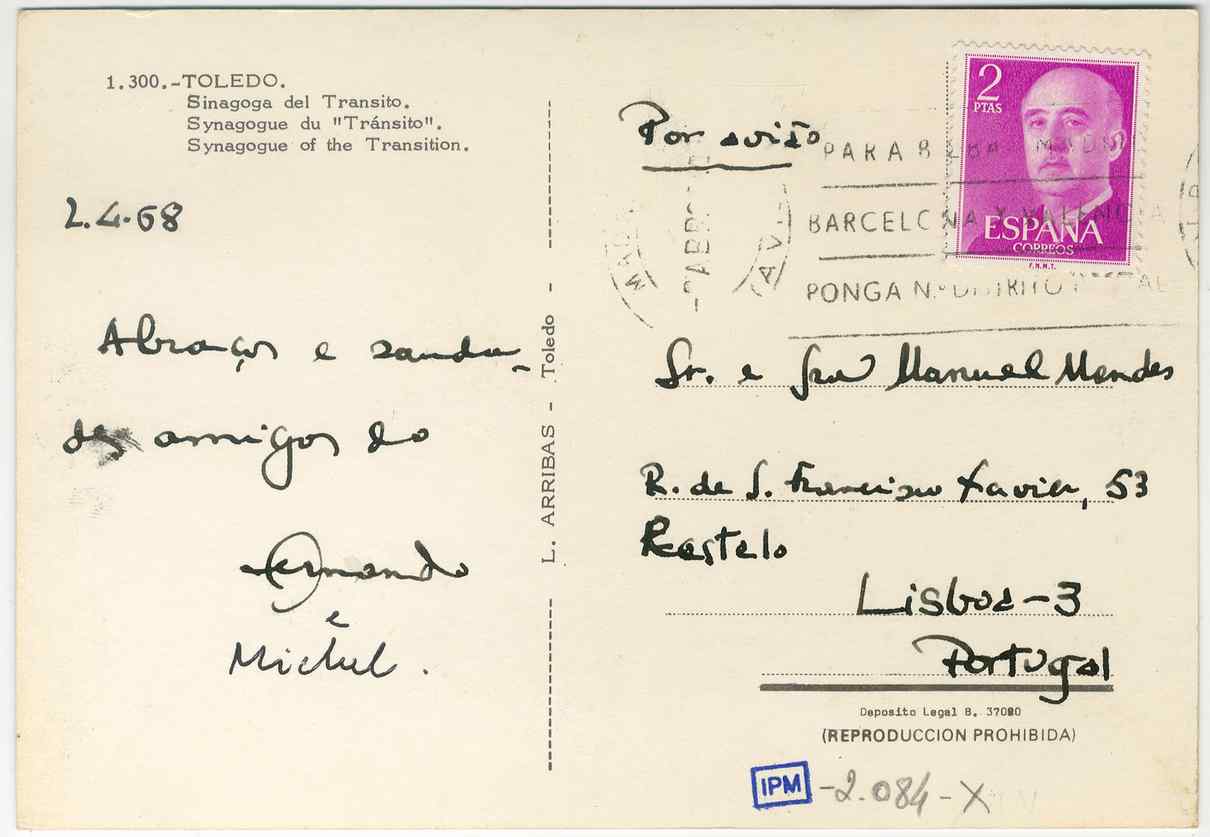 1.300.-TOLEDO.
Sinagoga del Transito.
Synagogue du "Tránsito".
Synagogue of the Transition.
2.4.68
Abraços e sauda-
des amigos do
Fernando
e
Michel.
L. ARRIBAS - Toledo -
Por avião
2 PTAS
ESPAÑA
CORREOS
F.N.M.T.
PARA
BARCELONA Y VALENCIA
PONGA N.º DISTRITO POSTAL
Sr. e Sra Manuel Mendes
R. de S. Francisco Xavier, 53
Restelo
Lisboa-3
Portugal
Deposito Legal B. 37080
(REPRODUCCION PROHIBIDA)
IPM -2.084-X